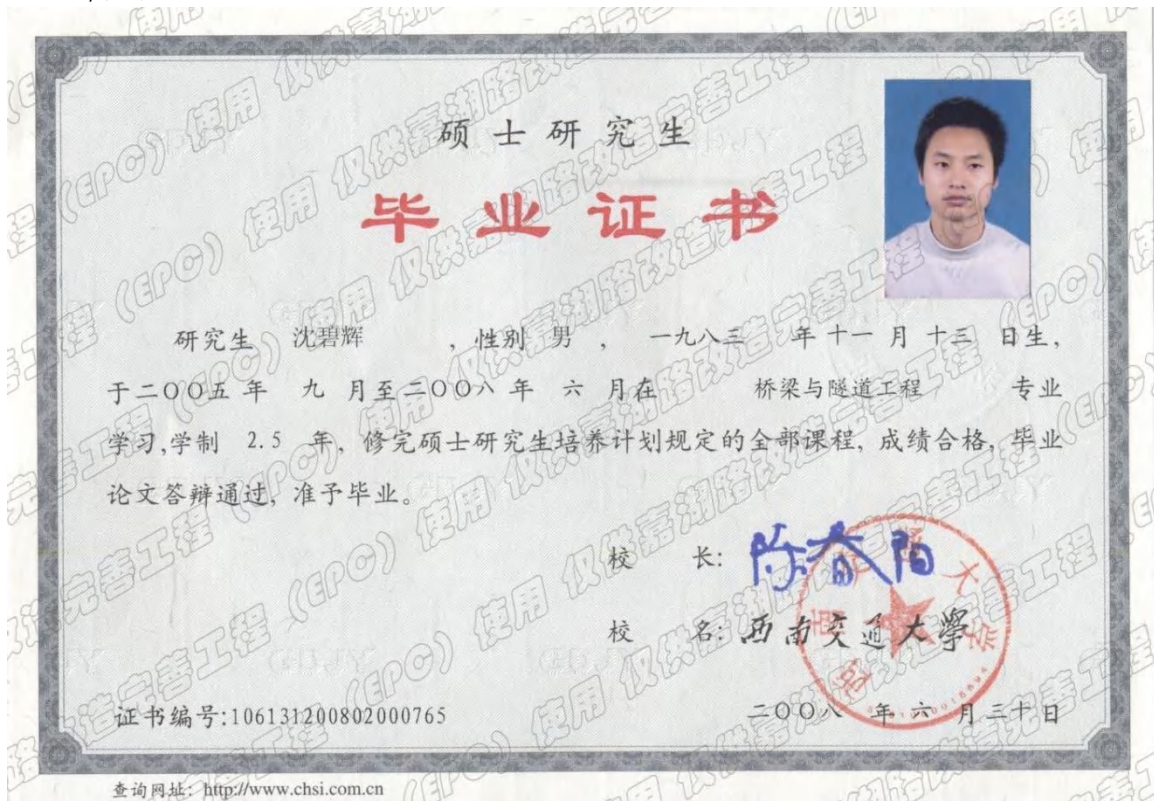 硕士研究生
毕业证书
研究生 沈碧辉 ，性别 男 ， 一九八三 年 十一 月 十三 日生，
于二〇〇五 年 九 月至二〇〇八 年 六 月在 桥梁与隧道工程 专业
学习,学制 2.5 年，修完硕士研究生培养计划规定的全部课程，成绩合格，毕业
论文答辩通过，准予毕业。
校 长: 陈春阳
校 名: 西南交通大學
证书编号:106131200802000765
二〇〇八 年 六 月三十日
查询网址: http://www.chsi.com.cn
仅供嘉湖路改造完善工程（EPC）使用